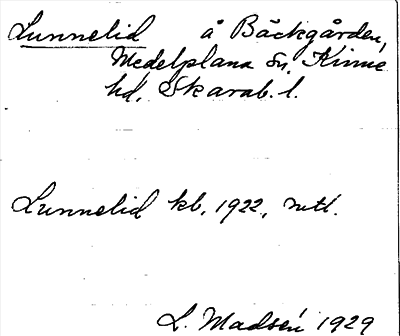 Lunnelid å Bäckgården,
Medelplana sn, Kinne
hd, Skarab. l.
Lunnelid kb. 1922, mtl.
L. Madsén 1929